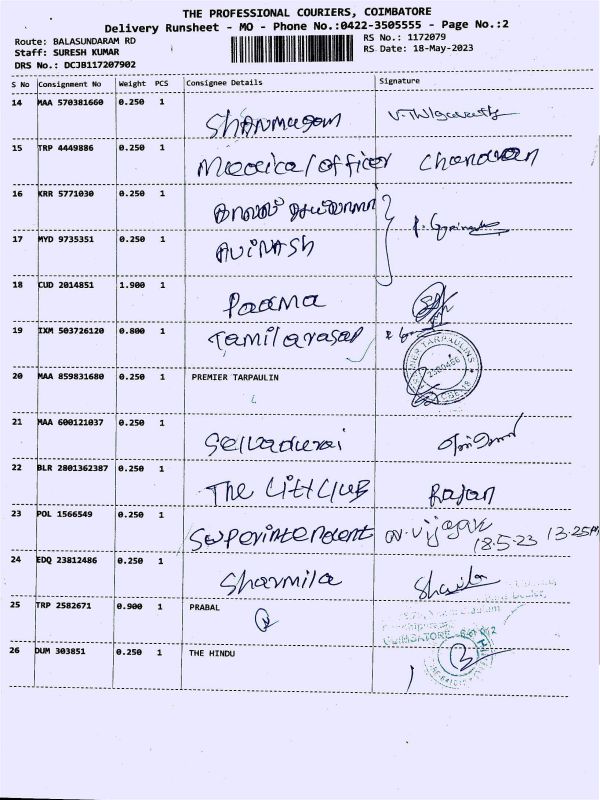 THE PROFESSIONAL COURIERS, COIMBATORE
Delivery Runsheet - MO - Phone No.:0422-3505555 - Page No.:2
Route: BALASUNDARAM RD
RS No.: 1172079
Staff: SURESH KUMAR
RS Date: 18-May-2023
DRS No.: DCJB117207902
S No Consignment No Weight PCS Consignee Details Signature
14 MAA 570381660 0.250 1 Shanmugam
15 TRP 4449886 0.250 1 Medical officer Chandran
16 KRR 5771030 0.250 1
17 MYD 9735351 0.250 1 AVINASH
18 CUD 2014851 1.900 1 Padma
19 IXM 503726120 0.800 1 Tamilarasan
PREMIER TARPAULINS
2380466
CBE-18
20 MAA 859831680 0.250 1 PREMIER TARPAULIN
21 MAA 600121037 0.250 1 Selvadurai
22 BLR 2801362387 0.250 1 THE Litt CLUB Rajan
23 POL 1566549 0.250 1 Superintendent
18.5.23 13.25PM
24 EDQ 23812486 0.250 1 Sharmila
25 TRP 2582671 0.900 1 PRABAL
COIMBATORE
26 DUM 303851 0.250 1 THE HINDU